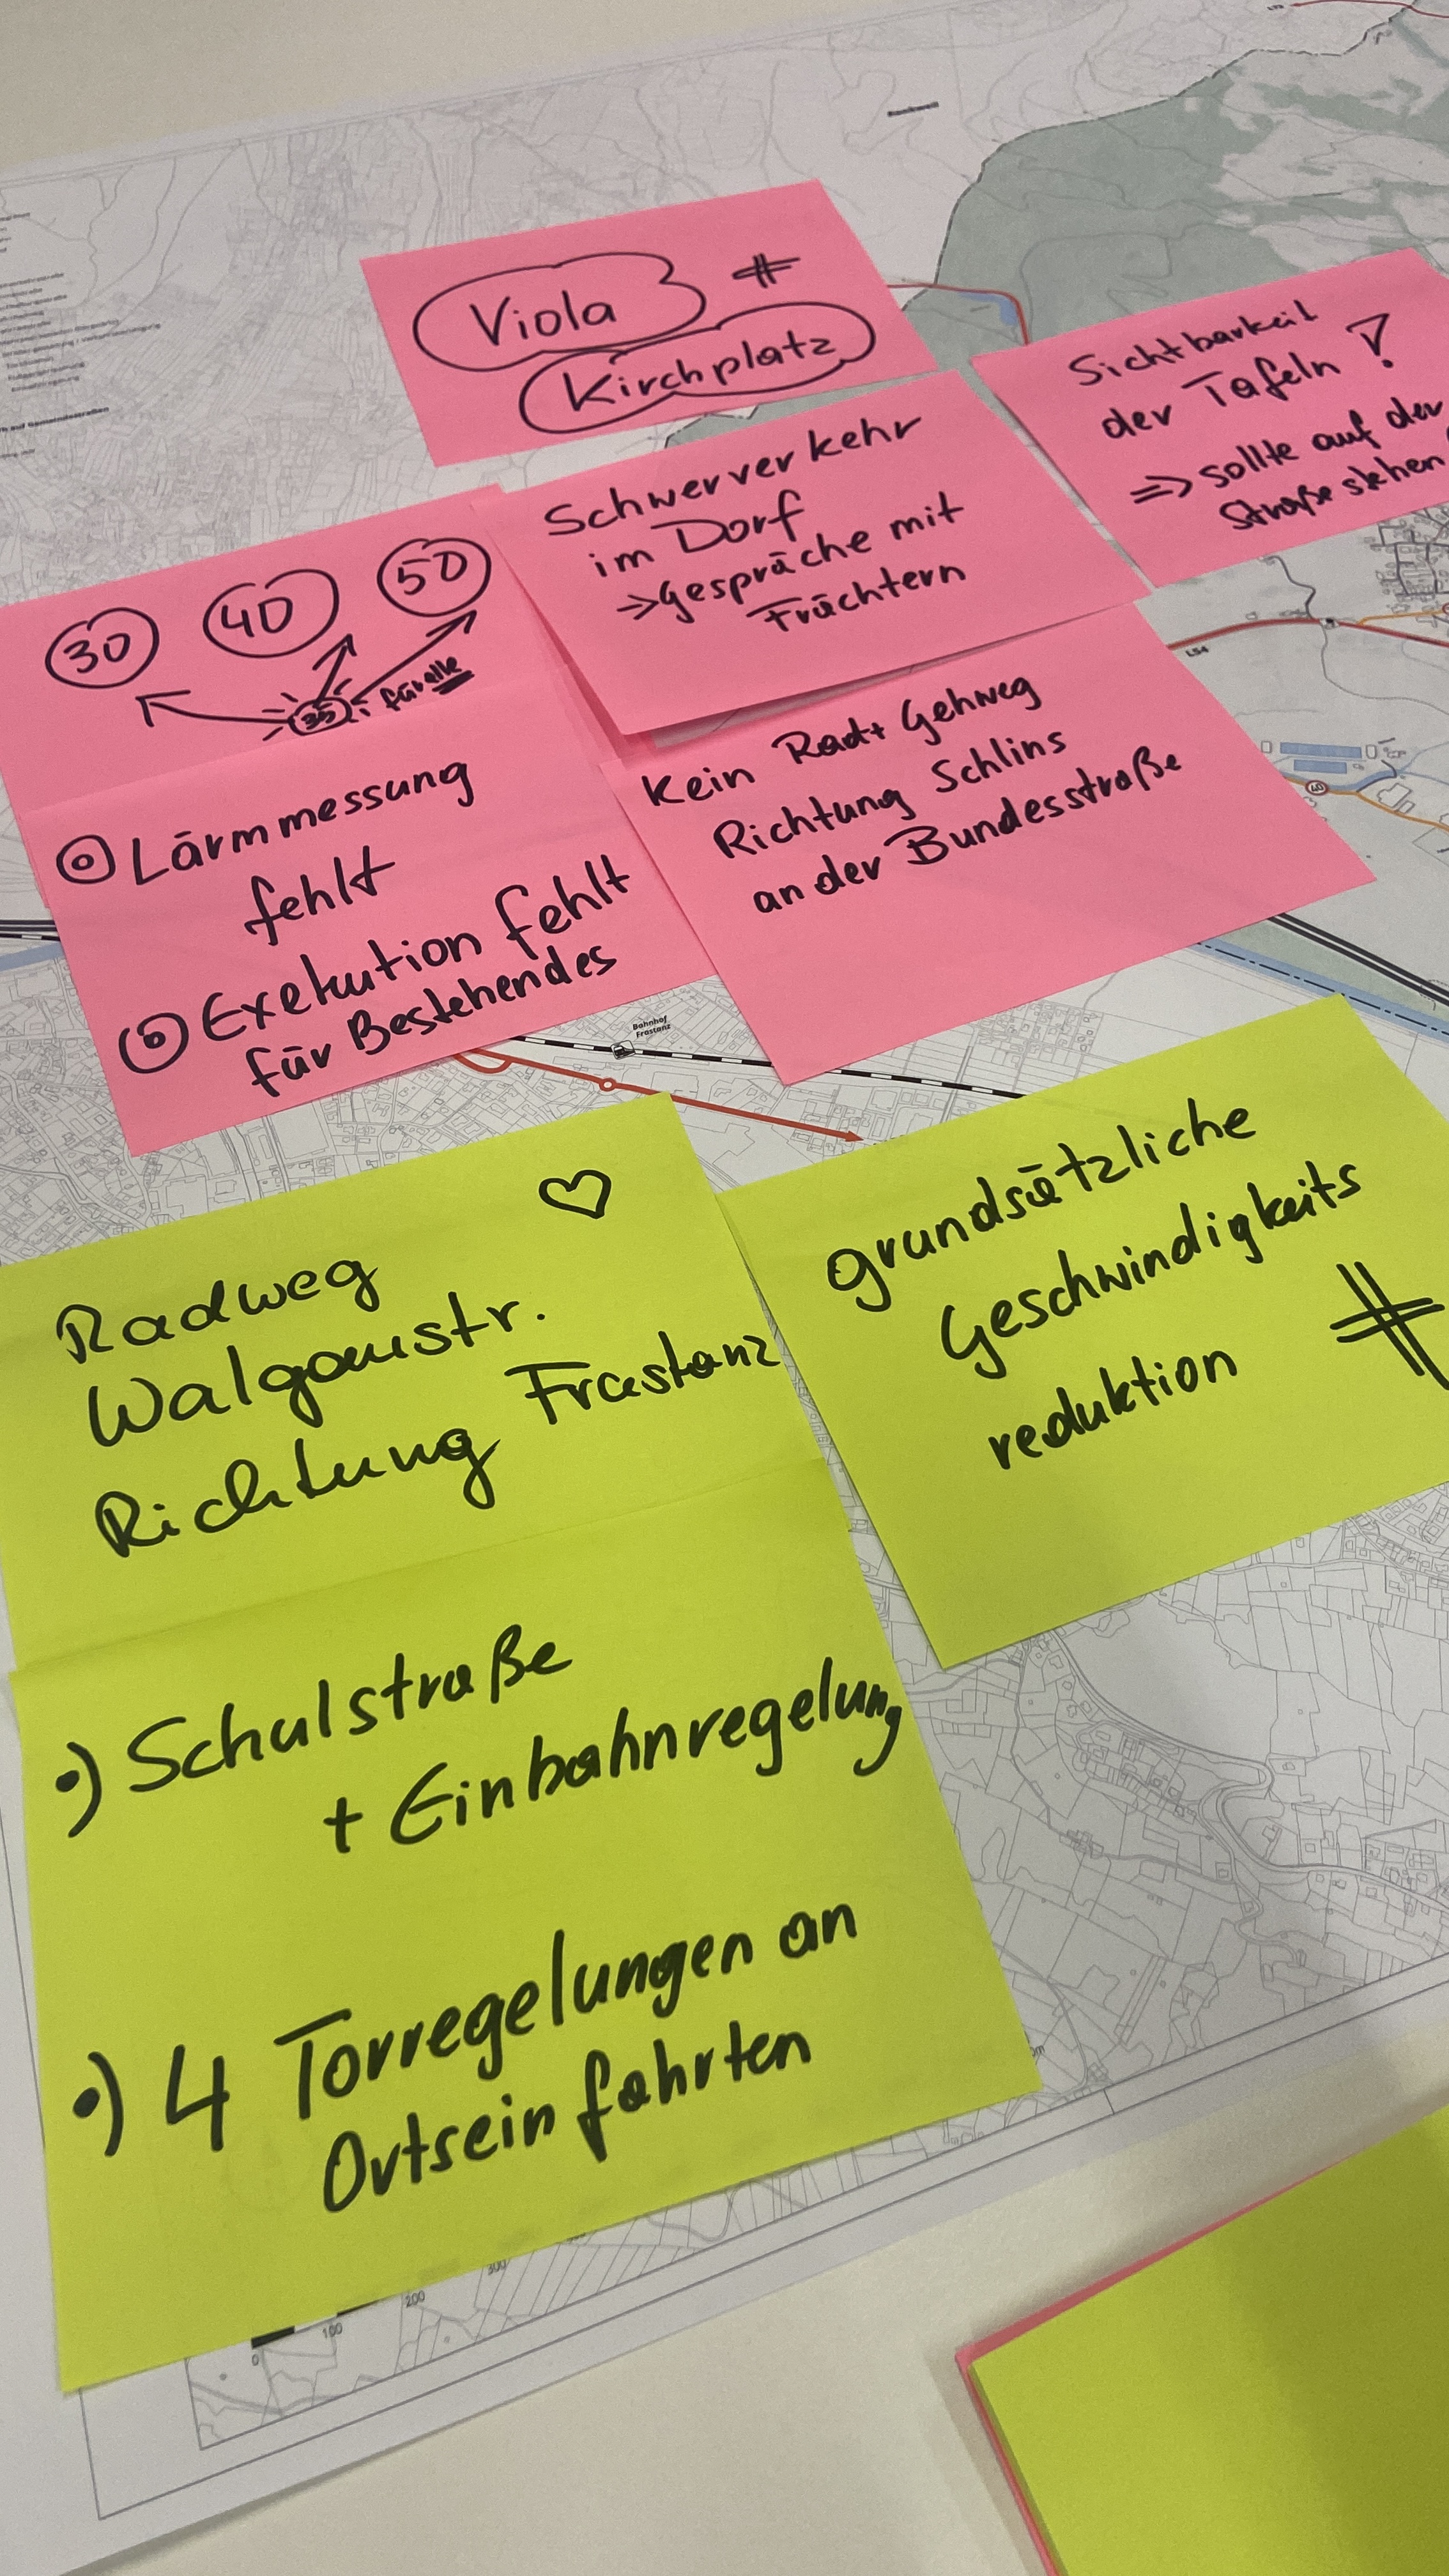 Viola #
Kirchplatz
Sichtbarkeit
der Tafeln !
=> sollte auf der
Straße stehen
Schwerverkehr
im Dorf
=> Gespräche mit
Frächtern
30 40 50
35 für alle
Kein Rad+ Gehweg
Richtung Schlins
an der Bundesstraße
Lärmmessung
fehlt
Exekution fehlt
für Bestehendes
L54
40
Bahnhof
Frastanz
Radweg
Walgaustr.
Richtung Frastanz
grundsätzliche
Geschwindigkeits
reduktion #
•) Schulstraße
+ Einbahnregelung
•) 4 Torregelungen an
Ortseinfahrten
0 100 200 300